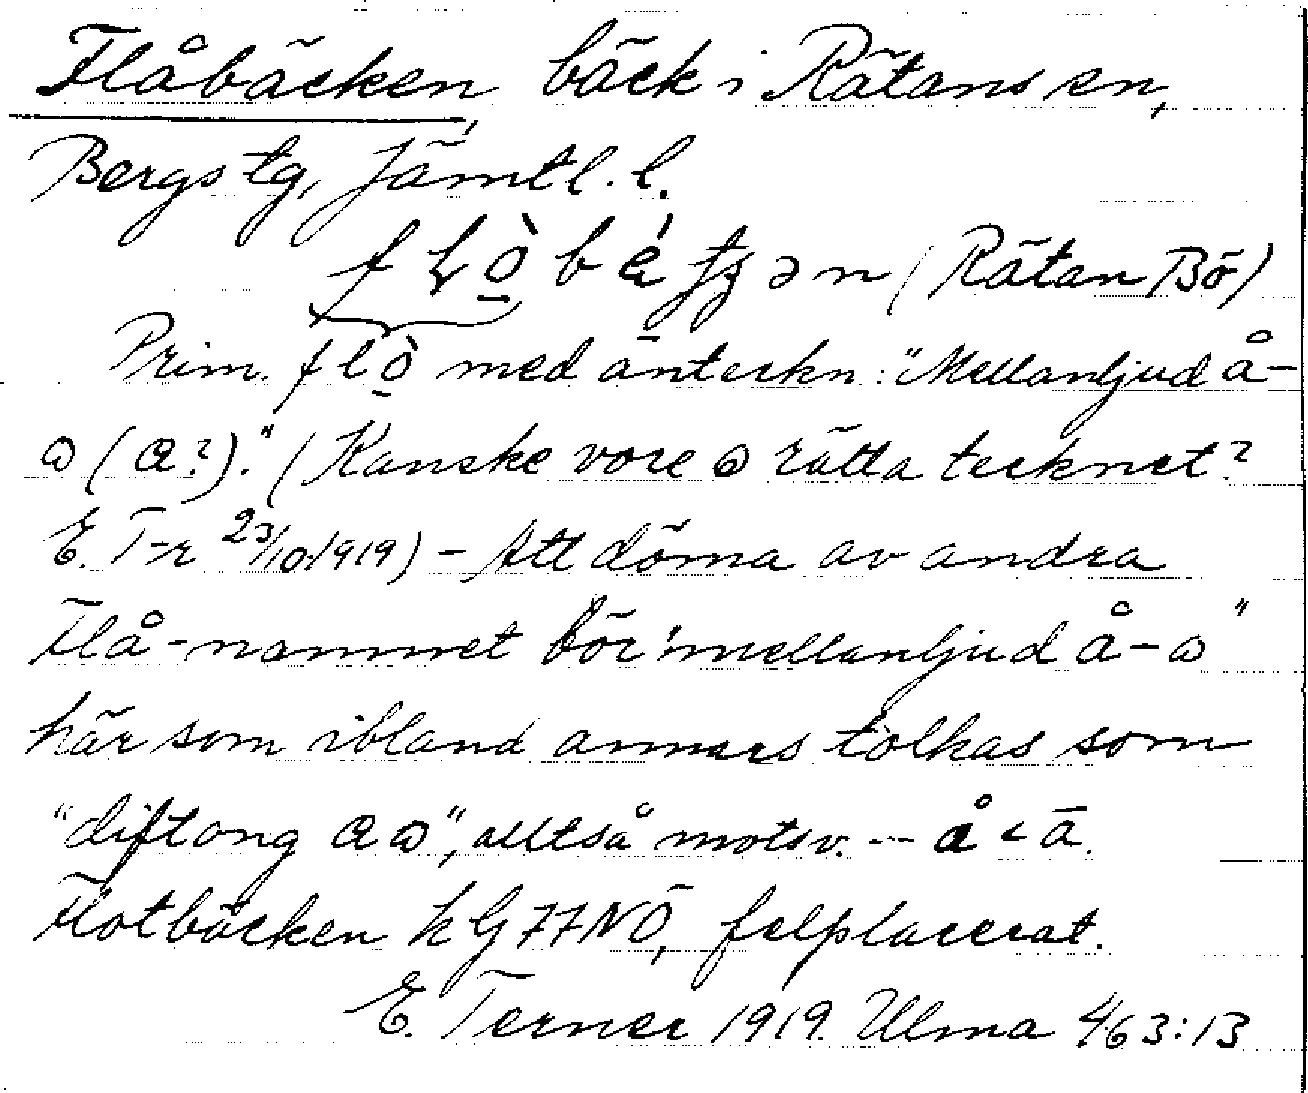 Flåbäcken, bäck i Rätans sn,
Bergs tg, Jämtl. l.
(Rätan Bö)
Prim. flò̱ med anteckn: "Mellanljud å-
ɷ (a?)." (Kanske vore ɷ rätta tecknet?
E. T-r 23/10 1919) - Att döma av andra
Flå-namnet bör "mellanljud å-ɷ"
här som ibland annars tolkas som
"diftong aɷ", alltså motsv. -- å < ā.
Flotbäcken k G 77NÖ, felplacerat.
E. Terner 1919. Ulma 463:13